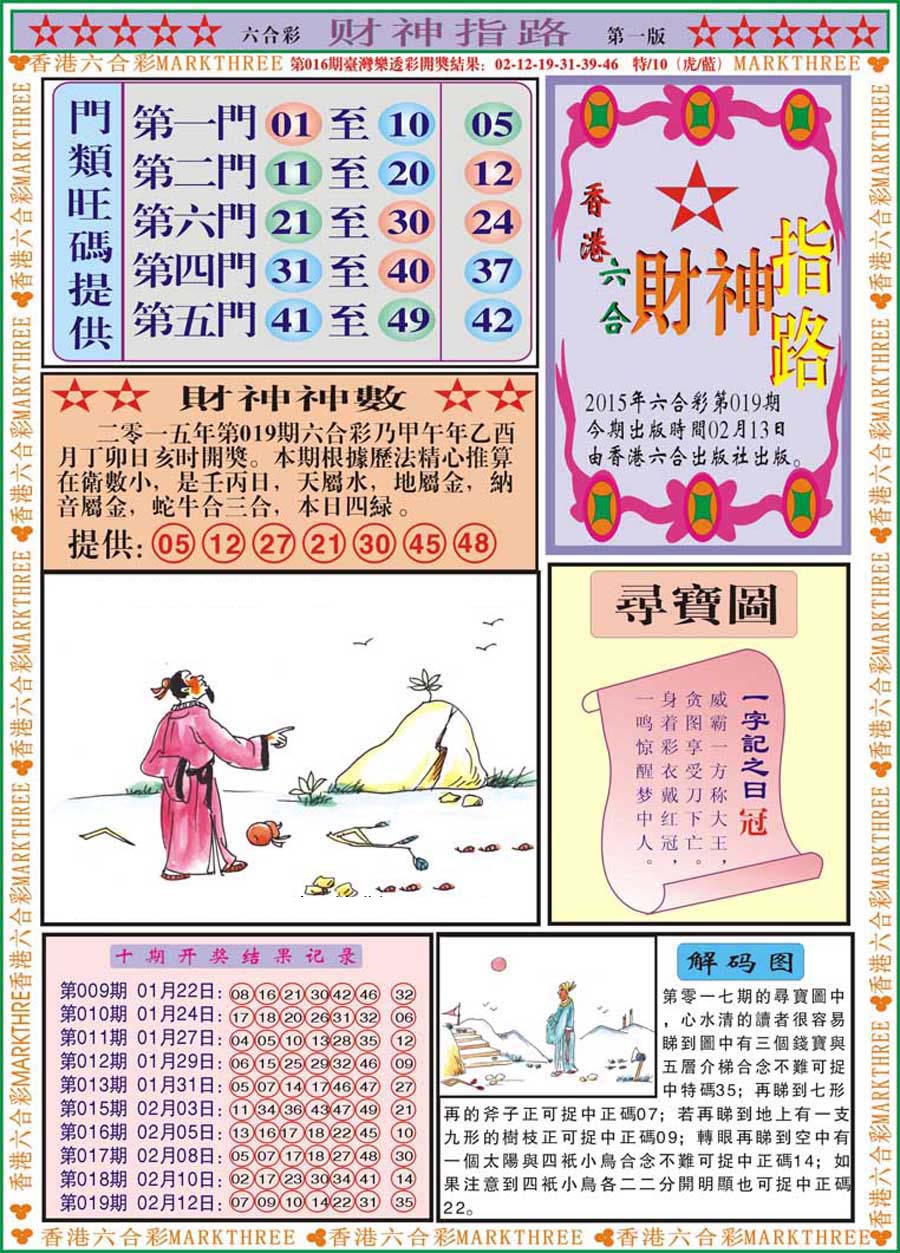 六合彩 财神指路 第一版
香港六合彩MARKTHREE 第016期臺灣樂透彩開獎結果：02-12-19-31-39-46 特/10（虎/藍）MARKTHREE
門類旺碼提供
第一門 01 至 10 05
第二門 11 至 20 12
第六門 21 至 30 24
第四門 31 至 40 37
第五門 41 至 49 42
香港六合
財神指路
2015年六合彩第019期
今期出版時間02月13日
由香港六合出版社出版。
財神神數
二零一五年第019期六合彩乃甲午年乙酉
月丁卯日亥时開獎。本期根據歷法精心推算
在衛數小，是壬丙日，天屬水，地屬金，納
音屬金，蛇牛合三合，本日四緑。
提供：05 12 27 21 30 45 48
尋寶圖
一字記之曰 冠
威霸一方称大王，
贪图享受刀下亡。
身着彩衣戴红冠，
一鸣惊醒梦中人。
十期开奖结果记录
第009期 01月22日：08 16 21 30 42 46 32
第010期 01月24日：17 18 20 26 31 32 06
第011期 01月27日：04 05 10 13 28 35 12
第012期 01月29日：06 15 25 29 32 46 09
第013期 01月31日：05 07 14 17 46 47 27
第015期 02月03日：11 34 36 43 47 49 21
第016期 02月05日：13 16 17 18 22 45 10
第017期 02月08日：05 07 17 18 27 48 30
第018期 02月10日：02 17 23 30 34 41 14
第019期 02月12日：07 09 10 14 22 31 35
解码图
第零一七期的尋寶圖中
，心水清的讀者很容易
睇到圖中有三個錢寶與
五層介梯合念不難可捉
中特碼35；再睇到七形
再的斧子正可捉中正碼07；若再睇到地上有一支
九形的樹枝正可捉中正碼09；轉眼再睇到空中有
一個太陽與四衹小鳥合念不難可捉中正碼14；如
果注意到四衹小鳥各二二分開明顯也可捉中正碼
22。
香港六合彩MARKTHREE 香港六合彩MARKTHREE 香港六合彩MARKTHREE
香港六合彩MARKTHREE香港六合彩MARKTHREE香港六合彩MARKTHREE香港六合彩MARKTHRE香港六合彩MARKTHREE
香港六合彩MARKTHREE香港六合彩MARKTHREE香港六合彩MARKTHREE香港六合彩MARKTHREE香港六合彩MARKTHREE